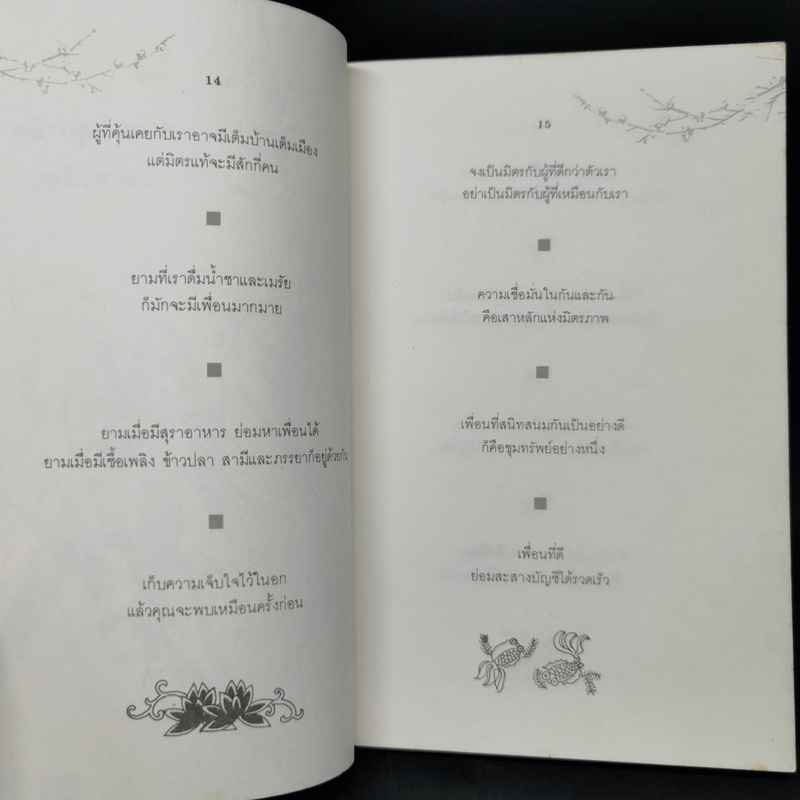 14
ผู้ที่คุ้นเคยกับเราอาจมีเต็มบ้านเต็มเมือง
แต่มิตรแท้จะมีสักกี่คน
ยามที่เราดื่มน้ำชาและเมรัย
ก็มักจะมีเพื่อนมากมาย
ยามเมื่อมีสุราอาหาร ย่อมหาเพื่อนได้
ยามเมื่อมีเชื้อเพลิง ข้าวปลา สามีและภรรยาก็อยู่ด้วยกัน
เก็บความเจ็บใจไว้ในอก
แล้วคุณจะพบเหมือนครั้งก่อน
15
จงเป็นมิตรกับผู้ที่ดีกว่าตัวเรา
อย่าเป็นมิตรกับผู้ที่เหมือนกับเรา
ความเชื่อมั่นในกันและกัน
คือเสาหลักแห่งมิตรภาพ
เพื่อนที่สนิทสนมกันเป็นอย่างดี
ก็คือขุมทรัพย์อย่างหนึ่ง
เพื่อนที่ดี
ย่อมสะสางบัญชีได้รวดเร็ว